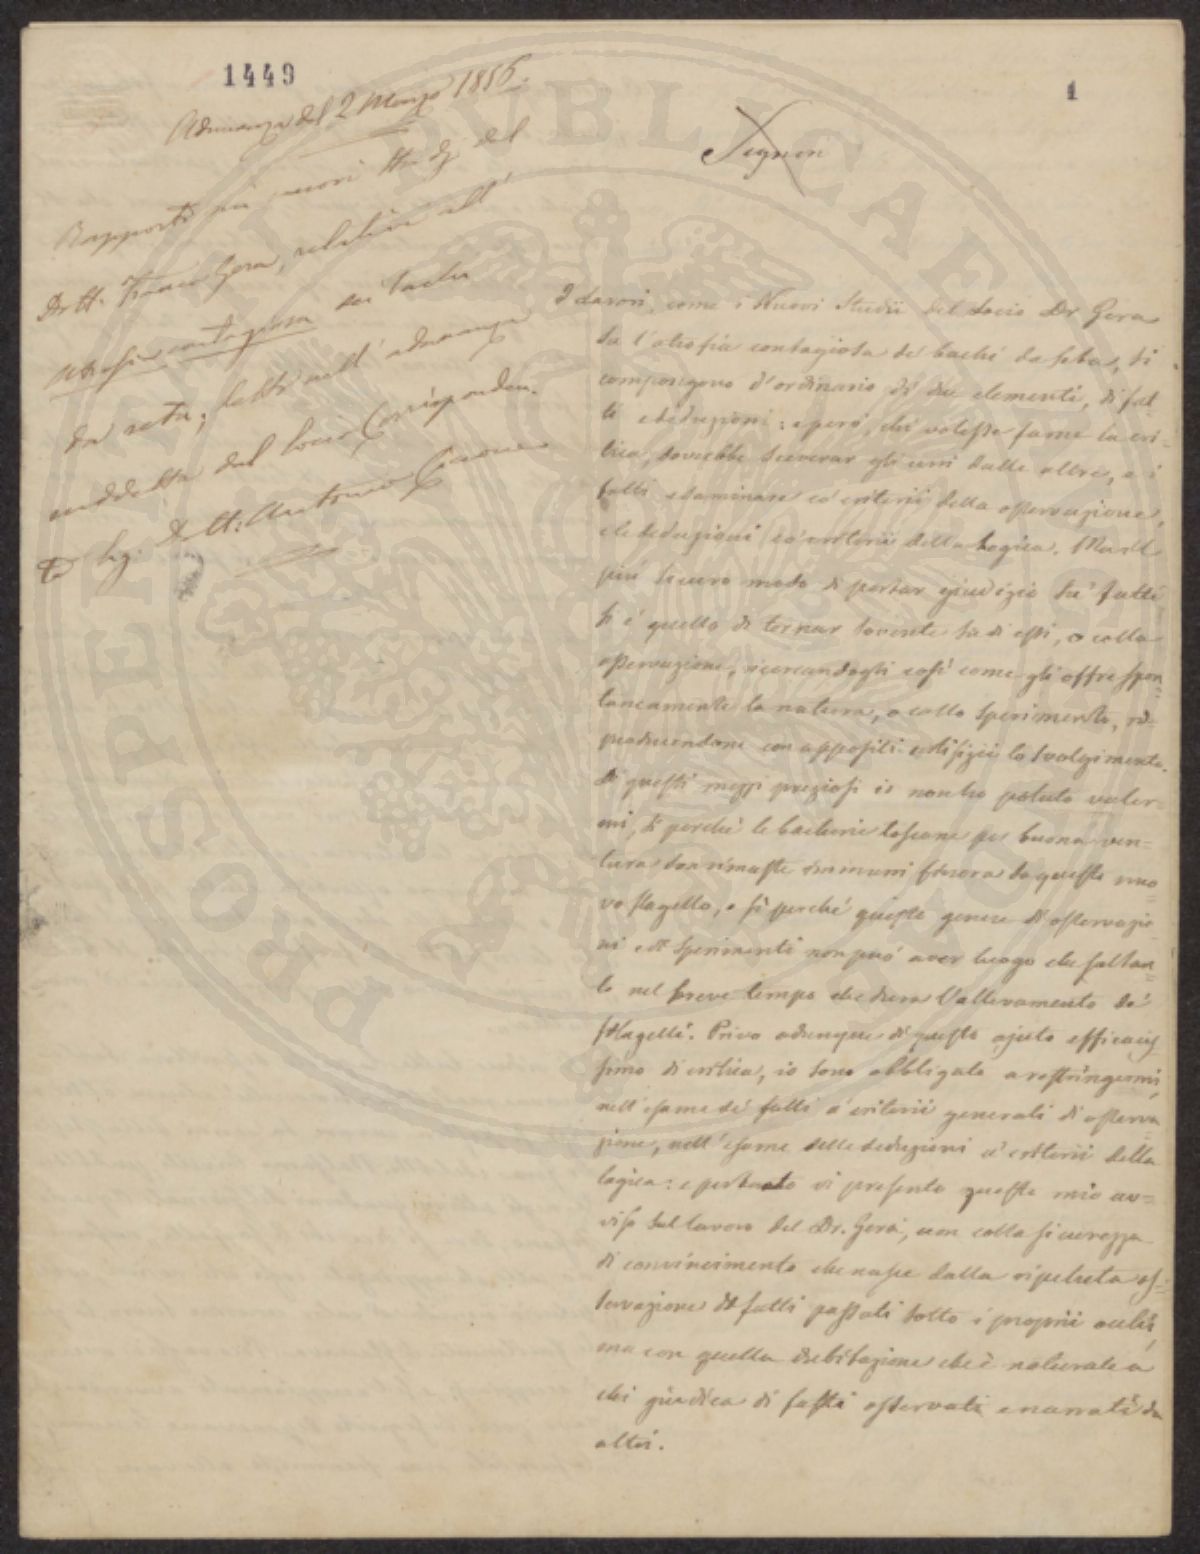 1449
1
Adunanza del 2 Marzo 1856.
Rapporto sui nuovi studj del
Dott. Franco Gera, relativi all'
atrofia contagiosa dei bachi
da seta; letto nell'adunanza
suddetta dal Socio Corrisponden-
te Sig. Dott. Antonio
Signori
I lavori, come i Nuovi Studii del Socio Dr Gera
su l'atrofia contagiosa de' bachi da seta, si
compongono d'ordinario di due elementi, di fat-
ti e deduzioni: e però, chi volesse farne la cri-
tica, dovrebbe sceverar gli uni dalle altre, e i
fatti esaminare co' criterii della osservazione,
e le deduzioni co' criterii della logica. Ma il
più sicuro modo di portar giudizio su' fatti
si è quello di tornar sovente su di essi, o colla
osservazione, ricercandogli così come gli offre spon-
taneamente la natura, o collo sperimento, ri-
producendone con appositi artifizii lo svolgimento.
Di questi mezzi preziosi io non ho potuto valer-
mi, sì perchè le bacherie toscane per buona ven-
tura son rimaste immuni finora da questo nuo-
vo flagello, e sì perché questo genere di osservazio-
ni e di sperimenti non può aver luogo che soltan-
to nel breve tempo che dura l'allevamento de'
filugelli. Privo adunque di questo ajuto efficacis-
simo di critica, io sono obbligato a restringermi,
nell'esame de' fatti a' criterii generali di osserva-
zione, nell'esame delle deduzioni a' criterii della
logica: e pertanto vi presento questo mio av-
viso sul lavoro del Dr. Gera, non colla sicurezza
di convincimento che nasce dalla ripetuta os-
servazione di fatti passati sotto i proprii occhi,
ma con quella dubitazione che è naturale a
chi giudica di fatti osservati e narrati da
altri.